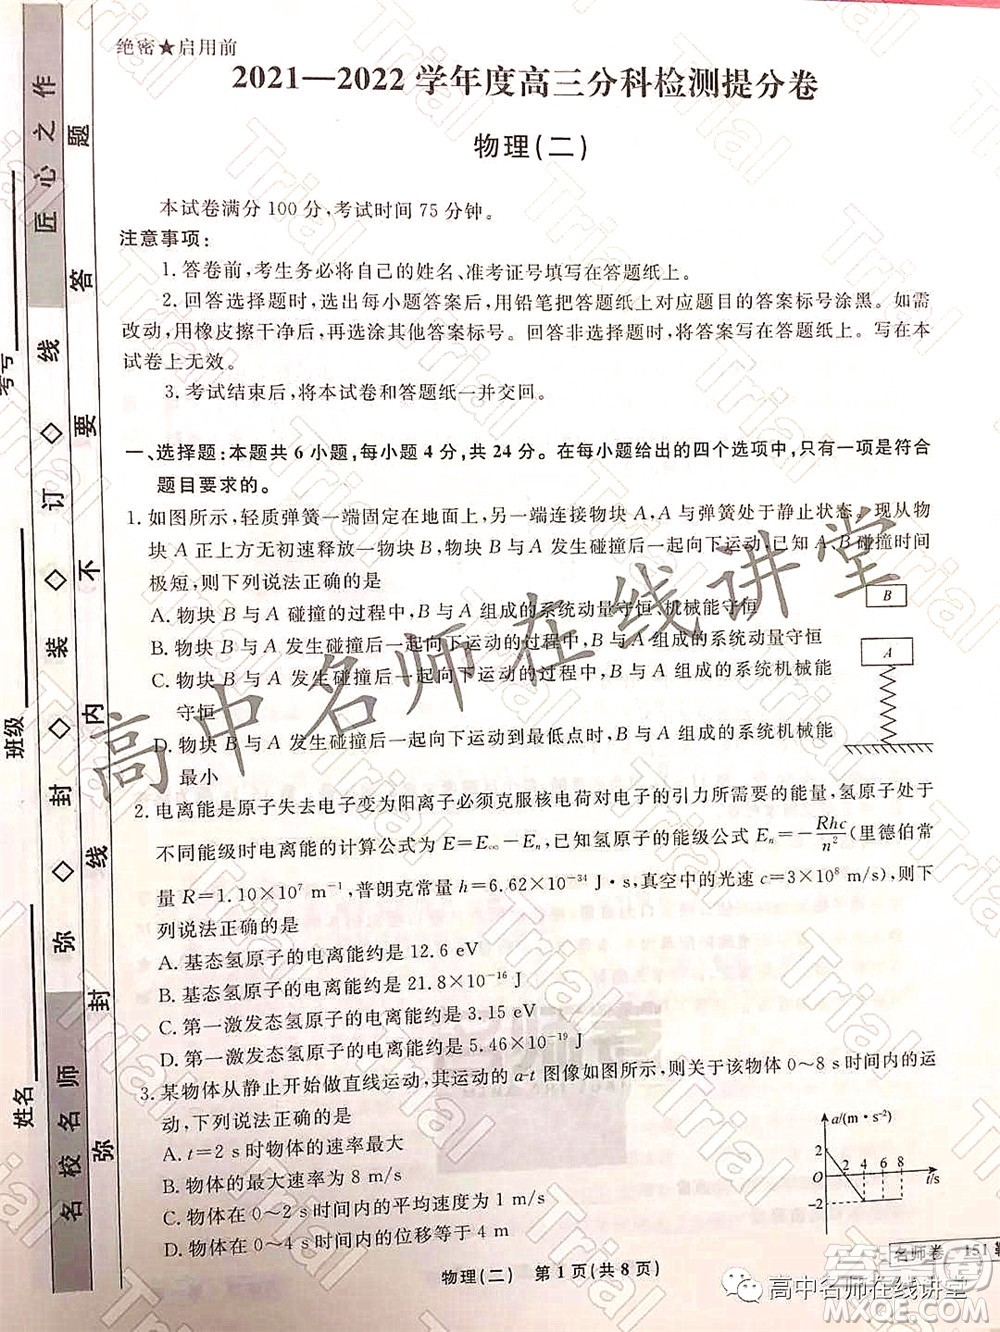 绝密★启用前
2021—2022学年度高三分科检测提分卷
物理(二)
本试卷满分100分,考试时间75分钟。
注意事项:
1. 答卷前,考生务必将自己的姓名、准考证号填写在答题纸上。
2. 回答选择题时,选出每小题答案后,用铅笔把答题纸上对应题目的答案标号涂黑。如需
改动,用橡皮擦干净后,再选涂其他答案标号。回答非选择题时,将答案写在答题纸上。写在本
试卷上无效。
3. 考试结束后,将本试卷和答题纸一并交回。
一、选择题:本题共6小题,每小题4分,共24分。在每小题给出的四个选项中,只有一项是符合
题目要求的。
1. 如图所示,轻质弹簧一端固定在地面上,另一端连接物块A,A与弹簧处于静止状态。现从物
块A正上方无初速释放一物块B,物块B与A发生碰撞后一起向下运动,已知A、B碰撞时间
极短,则下列说法正确的是
A. 物块B与A碰撞的过程中,B与A组成的系统动量守恒、机械能守恒
B. 物块B与A发生碰撞后一起向下运动的过程中,B与A组成的系统动量守恒
C. 物块B与A发生碰撞后一起向下运动的过程中,B与A组成的系统机械能
守恒
D. 物块B与A发生碰撞后一起向下运动到最低点时,B与A组成的系统机械能
最小
B
A
2. 电离能是原子失去电子变为阳离子必须克服核电荷对电子的引力所需要的能量,氢原子处于
不同能级时电离能的计算公式为E=E∞-En,已知氢原子的能级公式En=-Rhc/n²(里德伯常
量R=1.10×10⁷ m⁻¹,普朗克常量h=6.62×10⁻³⁴ J·s,真空中的光速c=3×10⁸ m/s),则下
列说法正确的是
A. 基态氢原子的电离能约是12.6 eV
B. 基态氢原子的电离能约是21.8×10⁻¹⁶ J
C. 第一激发态氢原子的电离能约是3.15 eV
D. 第一激发态氢原子的电离能约是5.46×10⁻¹⁹ J
3. 某物体从静止开始做直线运动,其运动的a-t图像如图所示,则关于该物体0~8 s时间内的运
动,下列说法正确的是
A. t=2 s时物体的速率最大
B. 物体的最大速率为8 m/s
C. 物体在0~2 s时间内的平均速度为1 m/s
D. 物体在0~2 s时间内的位移等于4 m
a/(m·s⁻²)
2
0
-2
2 4 6 8
t/s
物理(二) 第1页(共8页)
名师卷 151
匠心之作
名校名师
考号
班级
姓名
弥◇封◇装◇订◇线
弥封线内不要答题
高中名师在线讲堂
高中名师在线讲堂
答案圈
MXQE.COM
Trial